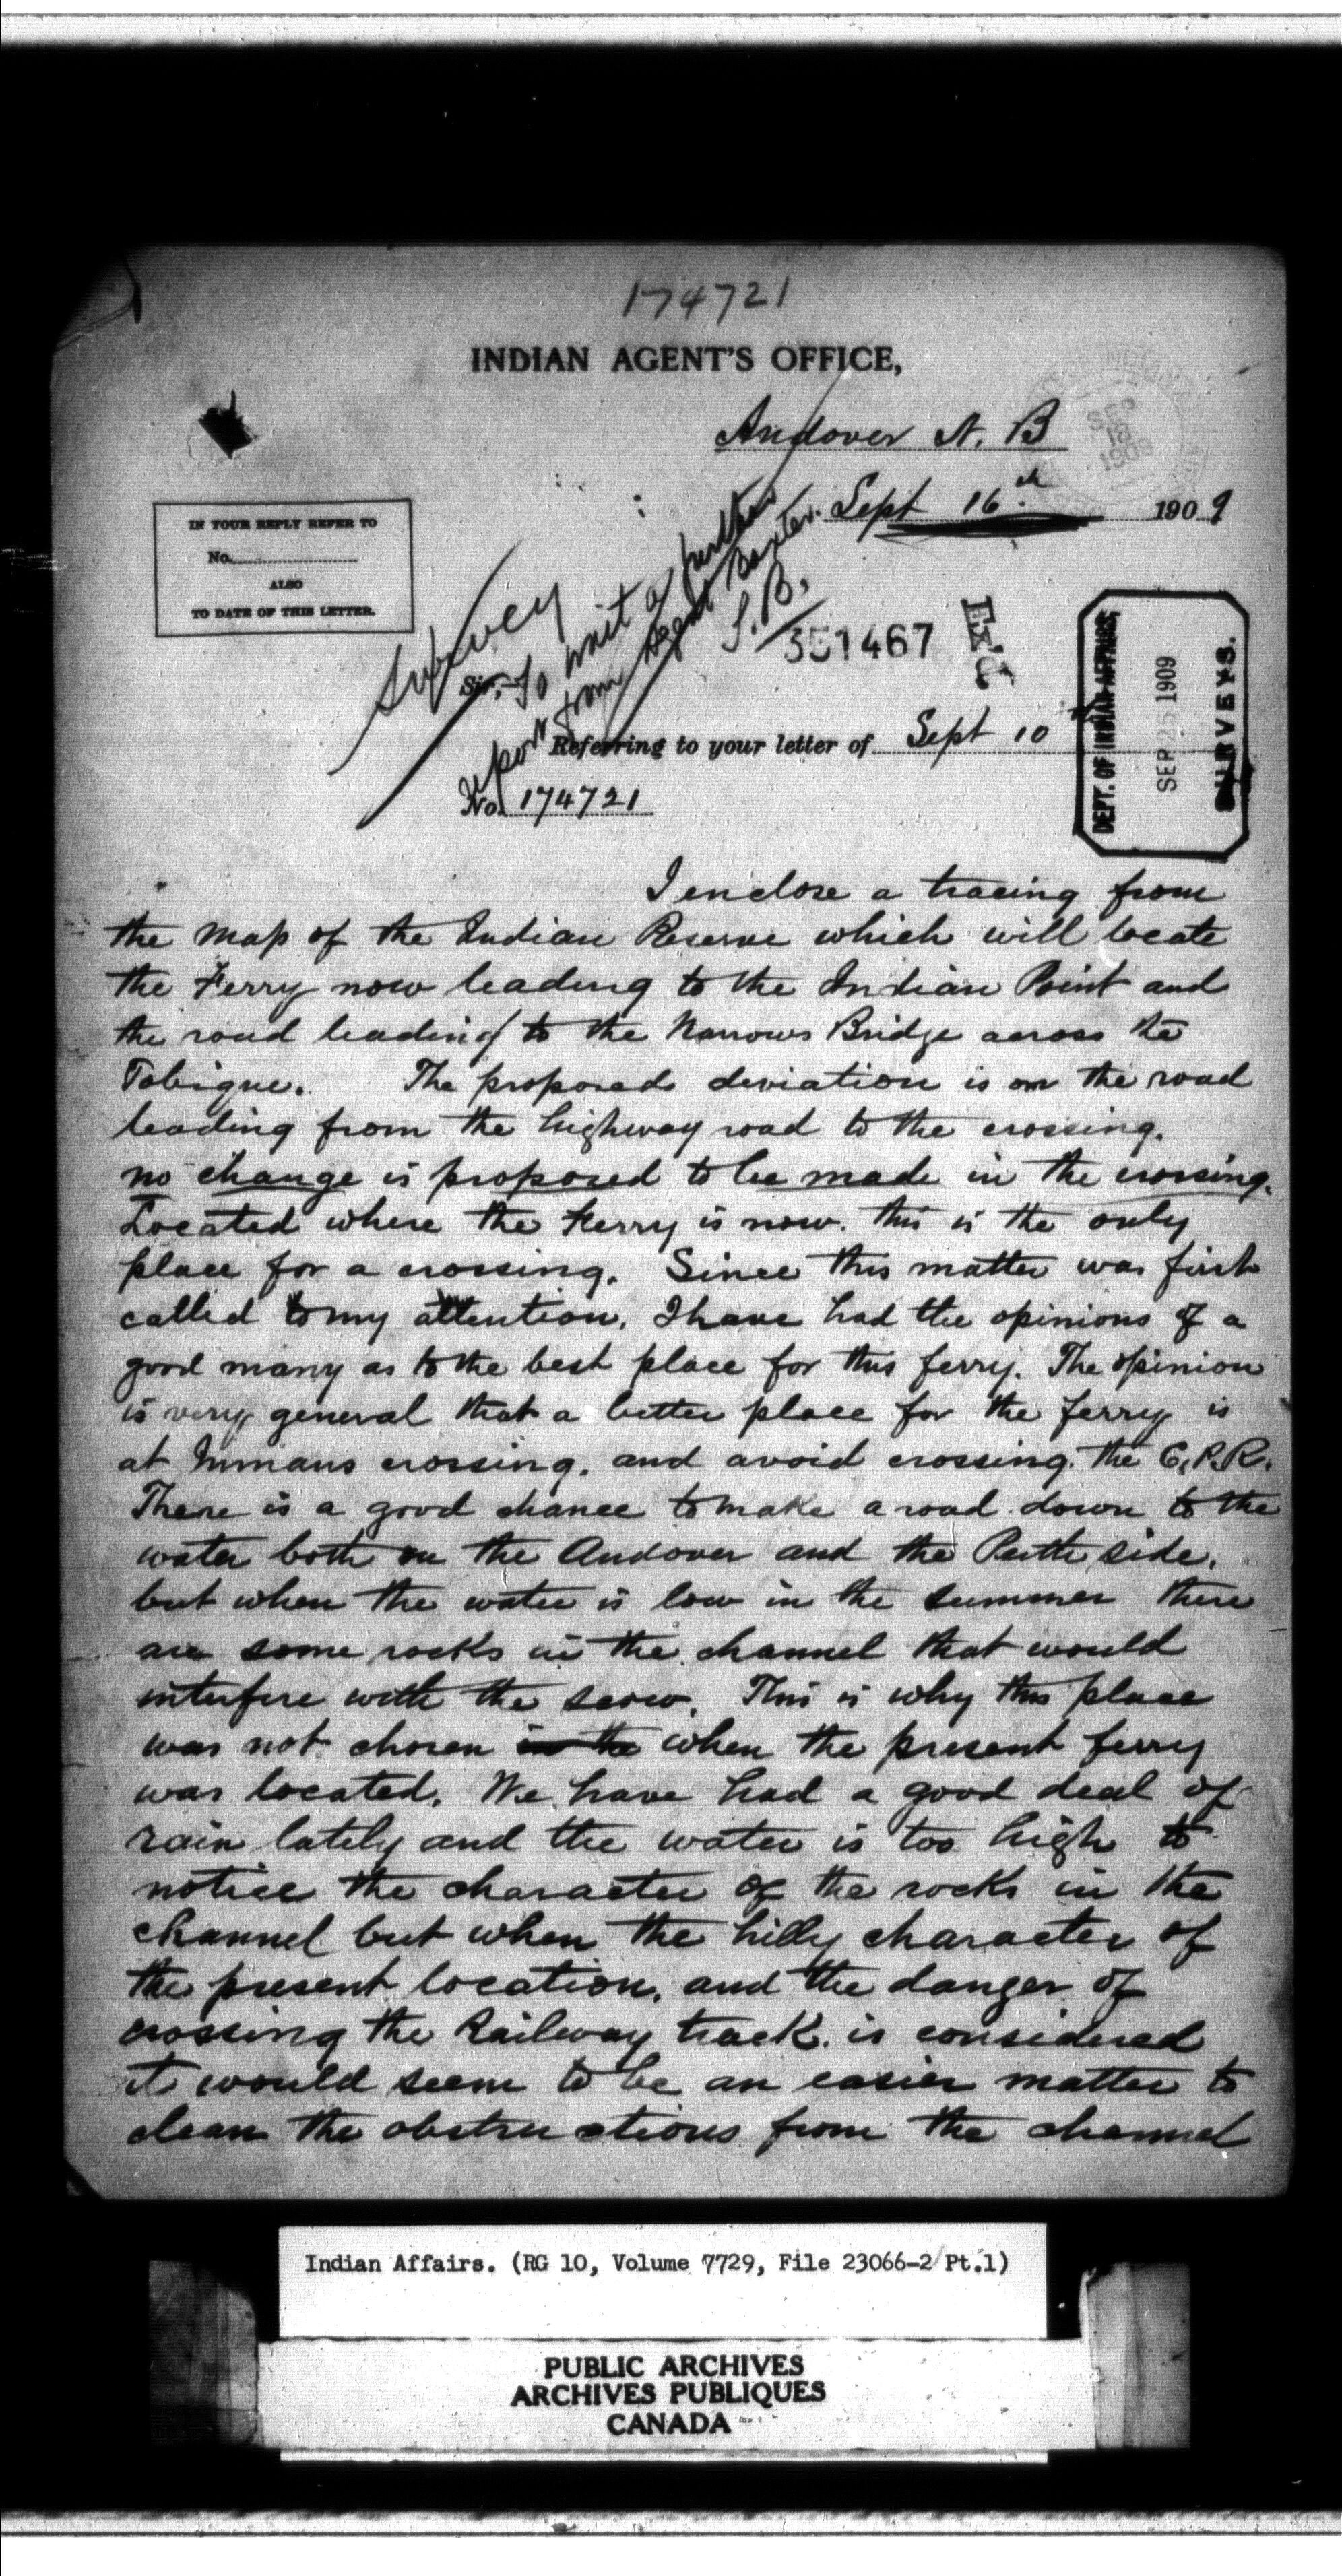 174721
INDIAN AGENT'S OFFICE,
Andover N. B
SEP
18
1909
Sept 16th 1909
IN YOUR REPLY REFER TO
No.
ALSO
TO DATE OF THIS LETTER.
Survey
To wait a further
report from Agent Baxter.
S.B.
351467
Ex'd
DEPT. OF INDIAN AFFAIRS,
SEP 25 1909
SURVEYS.
Sir,—
Referring to your letter of Sept 10th
No. 174721
I enclose a tracing from
the map of the Indian Reserve which will locate
the Ferry now leading to the Indian Point and
the road leading to the Narrows Bridge across the
Tobique. The proposed deviation is on the road
leading from the highway road to the crossing.
no change is proposed to be made in the crossing.
Located where the Ferry is now. this is the only
place for a crossing. Since this matter was first
called to my attention. I have had the opinions of a
good many as to the best place for this ferry. The opinion
is very general that a better place for the ferry is
at Inmans crossing. and avoid crossing the C.P.R.
There is a good chance to make a road down to the
water both on the Andover and the Perth side.
but when the water is low in the summer there
are some rocks in the channel that would
interfere with the scow. This is why this place
was not chosen in the when the present ferry
was located. We have had a good deal of
rain lately and the water is too high to
notice the character of the rocks in the
channel but when the hilly character of
the present location. and the danger of
crossing the Railway track. is considered
it would seem to be an easier matter to
clean the obstructions from the channel
Indian Affairs. (RG 10, Volume 7729, File 23066-2 Pt.1)
PUBLIC ARCHIVES
ARCHIVES PUBLIQUES
CANADA